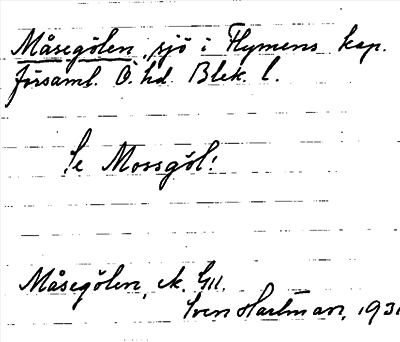 Måsegölen, sjö i Flymens kap.
församl. Ö. hd. Blek. l.
Se Mossgöl!
Måsegölen, ek. G11.
Sven Hartman, 193